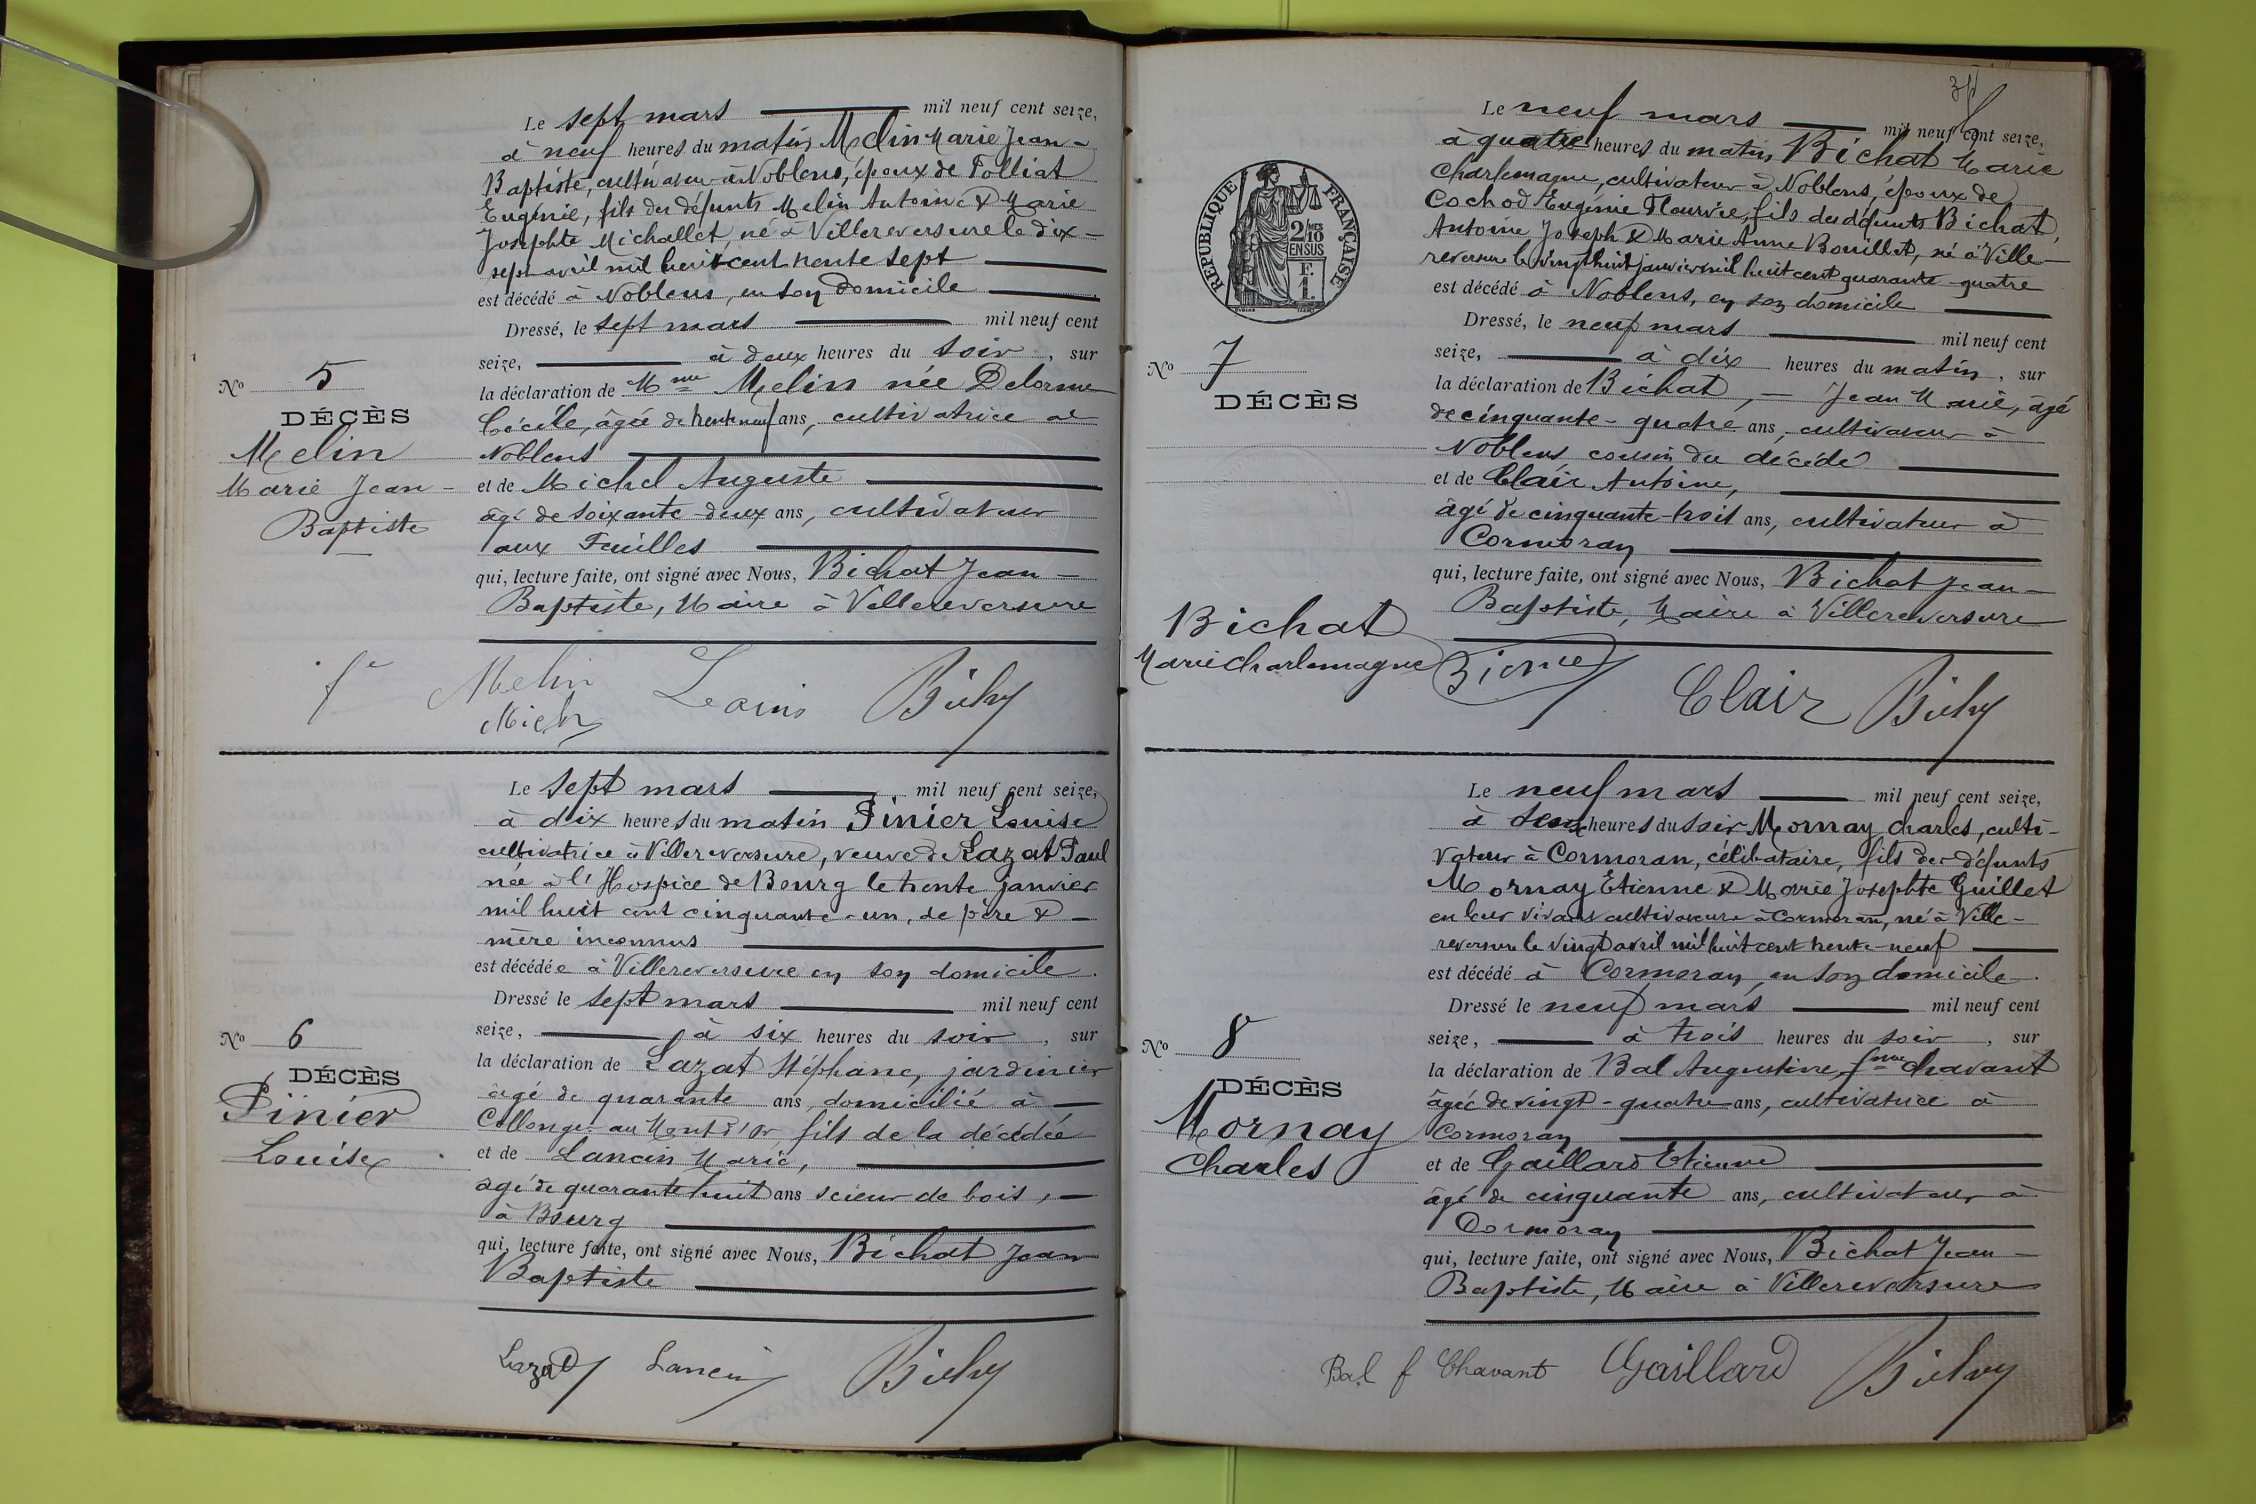 Le sept mars mil neuf cent seize,
à neuf heures du matin Melin Marie Jean-
Baptiste, cultivateur à Noblens, époux de Folliat
Eugénie, fils des défunts Melin Antoine & Marie
Josephte Michallet, né à Villereversure le dix-
sept avril mil huit cent trente sept
est décédé à Noblens, en son domicile
Dressé, le sept mars mil neuf cent
seize, à deux heures du soir, sur
la déclaration de Mme Melin née Delorme
Cécile, âgée de trente neuf ans, cultivatrice à
Noblens
et de Michel Auguste
âgé de soixante-deux ans, cultivateur
aux Feuilles
qui, lecture faite, ont signé avec Nous, Bichat Jean-
Baptiste, Maire à Villereversure
No 5
DÉCÈS
Melin
Marie Jean-
Baptiste
fe Melin
Le sept mars mil neuf cent seize,
à dix heures du matin Pinier Louise
cultivatrice à Villereversure, veuve de Lazat Paul
née à l'Hospice de Bourg le trente janvier
mil huit cent cinquante-un, de père &
mère inconnus
est décédée à Villereversure en son domicile.
Dressé le sept mars mil neuf cent
seize, à six heures du soir, sur
la déclaration de Lazat Stéphane, jardinier
âgé de quarante ans, domicilié à
Collonges au Mont d'Or, fils de la décédée
et de Lancin Marie,
âgé de quarante huit ans scieur de bois,
à Bourg
qui, lecture faite, ont signé avec Nous, Bichat Jean
Baptiste
No 6
DÉCÈS
Pinier
Louise
Lazat Lancin
Le neuf mars mil neuf cent seize,
à quatre heures du matin Bichat Marie
Charlemagne, cultivateur à Noblens, époux de
Cochod Eugénie Fleurie, fils des défunts Bichat,
Antoine Joseph & Marie Anne Bouillet, né à Ville-
reversure le vingt huit janvier mil huit cent quarante-quatre
est décédé à Noblens, en son domicile
Dressé, le neuf mars mil neuf cent
seize, à dix heures du matin, sur
la déclaration de Bichat, Jean Marie, âgé
de cinquante-quatre ans, cultivateur à
Noblens cousin du décédé
et de Clair Antoine,
âgé de cinquante-trois ans, cultivateur à
Cormoran
qui, lecture faite, ont signé avec Nous, Bichat Jean-
Baptiste, Maire à Villereversure
RÉPUBLIQUE FRANÇAISE
2/10 MES
EN SUS
F.
1.
No 7
DÉCÈS
Bichat
Marie Charlemagne
Clair
Le neuf mars mil neuf cent seize,
à deux heures du soir Mornay Charles, culti-
vateur à Cormoran, célibataire, fils des défunts
Mornay Etienne & Marie Josephte Guillet
en leur vivant cultivateurs à Cormoran, né à Ville-
reversure le vingt avril mil huit cent trente-neuf
est décédé à Cormoran, en son domicile.
Dressé le neuf mars mil neuf cent
seize, à trois heures du soir, sur
la déclaration de Bal Augustine fme Chavant
âgée de vingt-quatre ans, cultivatrice à
Cormoran
et de Gaillard Etienne
âgé de cinquante ans, cultivateur à
Cormoran
qui, lecture faite, ont signé avec Nous, Bichat Jean-
Baptiste, Maire à Villereversure
No 8
DÉCÈS
Mornay
Charles
Bal f Chavant Gaillard